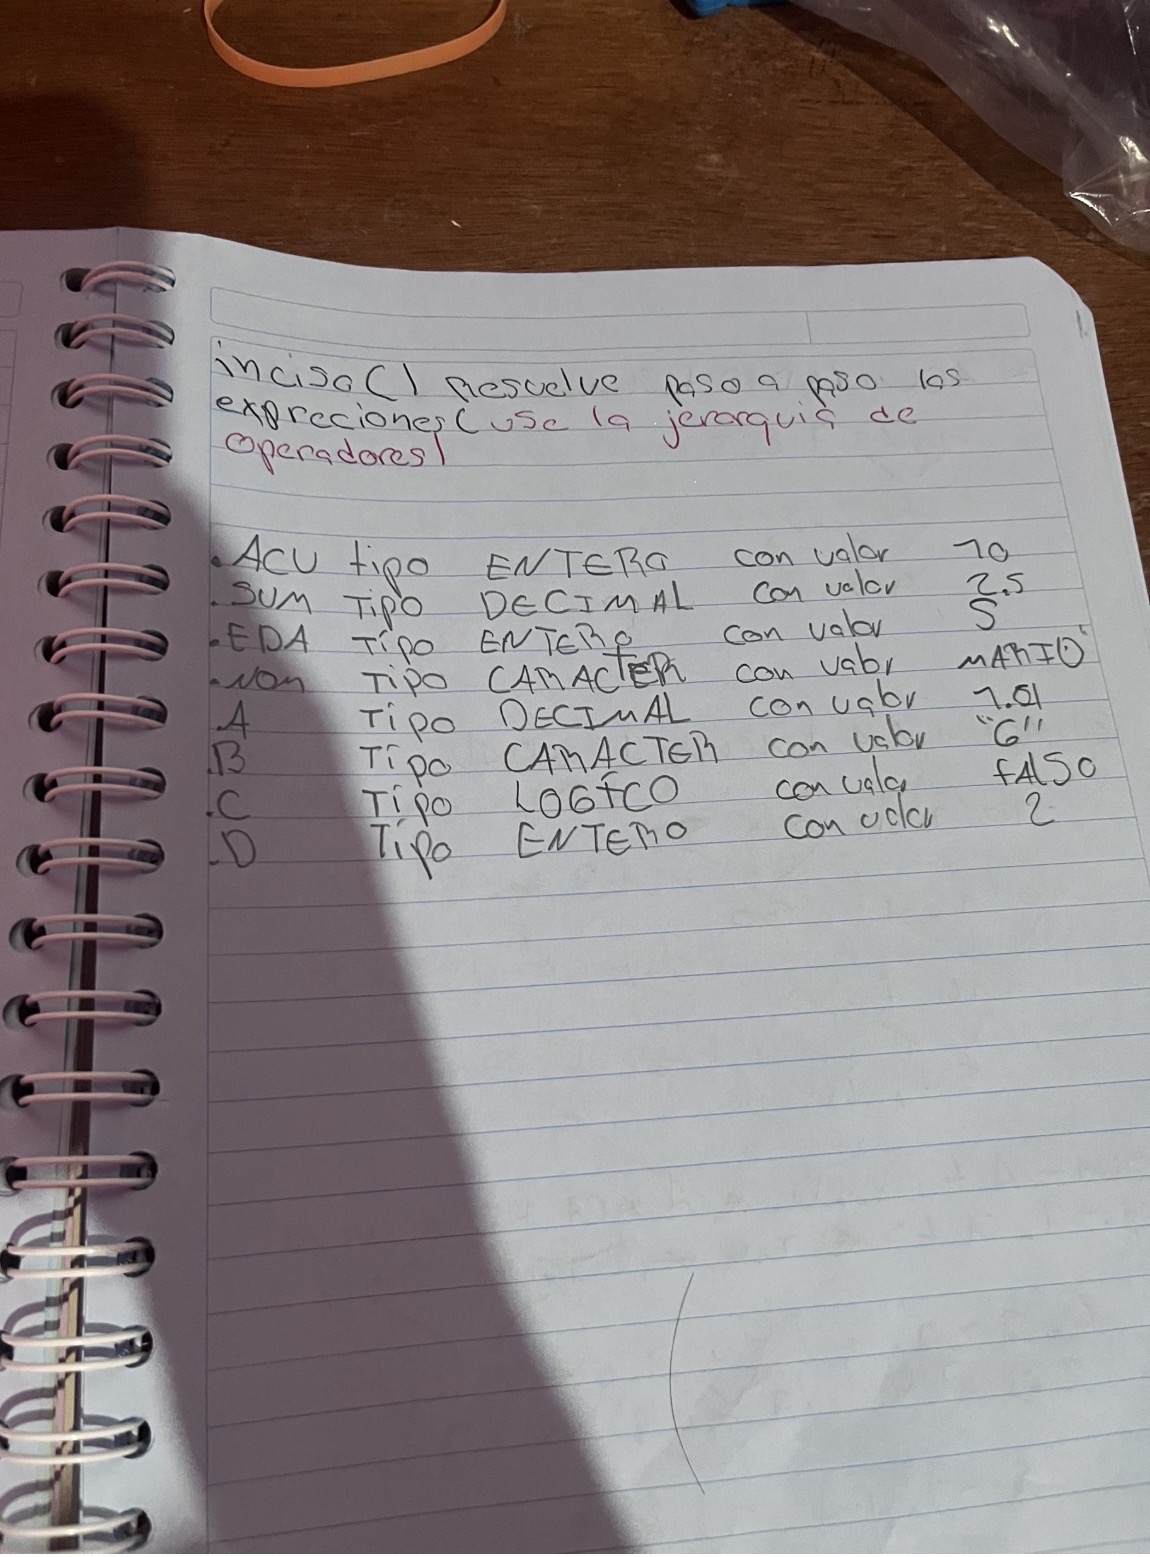 inciso C) Resuelve paso a paso las
expreciones (use la jerarquia de
operadores)
. ACU tipo ENTERO con valor 10
. SUM Tipo DECIMAL con valor 2.5
. EDA Tipo ENTERO con valor 5
. Nom Tipo CARACTER con valor MARIO'
. A Tipo DECIMAL con valor 1.01
. B Tipo CARACTER con valor "6"
. C Tipo LOGICO con valor fAlSO
. D Tipo ENTERO con valor 2